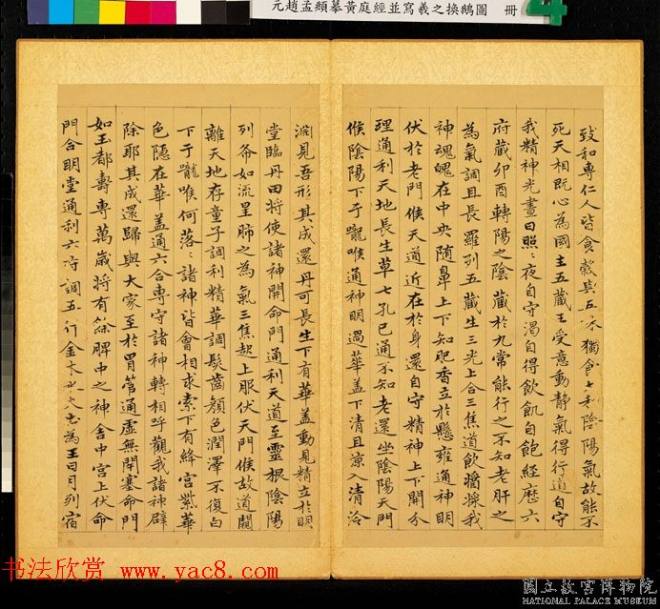 元趙孟頫摹黃庭經並寫羲之換鵝圖 冊
致和專仁人皆食穀與五味獨食太和陰陽氣故能不
死天相既心為國主五藏王受意動靜氣得行道自守
我精神光晝日照:夜自守渴自得飲飢自飽經歷六
府藏卯酉轉陽之陰藏於九常能行之不知老肝之
為氣調且長羅列五藏生三光上合三焦道飲醬漿我
神魂魄在中央隨鼻上下知肥香立於懸雍通神明
伏於老門候天道近在於身還自守精神上下開分
理通利天地長生草七孔已通不知老還坐陰陽天門
候陰陽下于嚨喉通神明過華蓋下清且涼入清泠
淵見吾形其成還丹可長生下有華蓋動見精立於明
堂臨丹田將使諸神開命門通利天道至靈根陰陽
列布如流星肺之為氣三焦起上服伏天門候故道闚
離天地存童子調利精華調髮齒顏色潤澤不復白
下于嚨喉何落:諸神皆會相求索下有絳宮紫華
色隱在華蓋通六合專守諸神轉相呼觀我諸神辟
除耶其成還歸與大家至於胃管通虛無閉塞命門
如玉都壽專萬歲將有餘脾中之神舍中宮上伏命
門合明堂通利六府調五行金木水火土為王日月列宿
书法欣赏 www.yac8.com
國立故宮博物院
NATIONAL PALACE MUSEUM